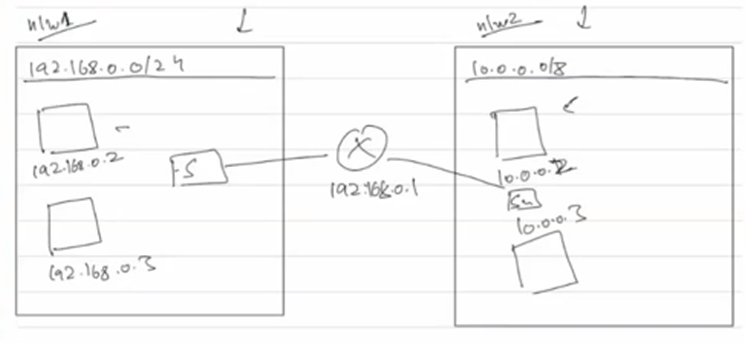 n/w1
192.168.0.0/24
192.168.0.2
S
192.168.0.3
X
192.168.0.1
n/w2
10.0.0.0/8
10.0.0.2
Sw
10.0.0.3